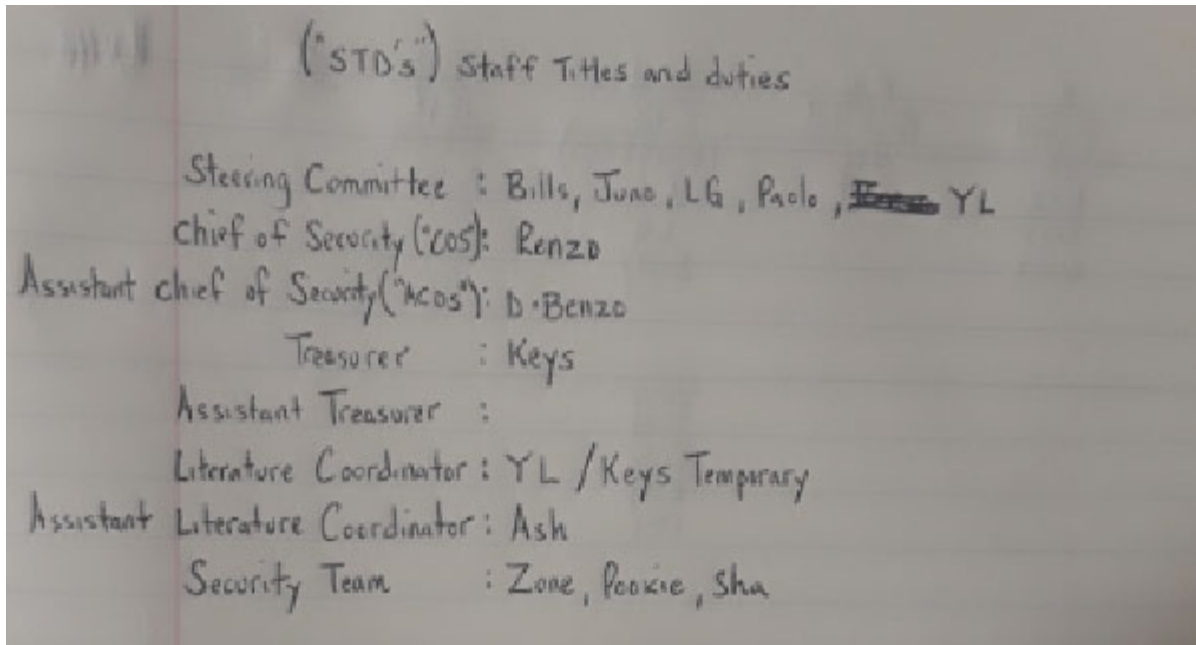 ("STD's") Staff Titles and duties
Steering Committee : Bills, Juno, LG, Paolo, YL
Chief of Security ("COS"): Renzo
Assistant chief of Security("ACOS"): D.Benzo
Treasurer : Keys
Assistant Treasurer :
Literature Coordinator : YL / Keys Temporary
Assistant Literature Coordinator : Ash
Security Team : Zone, Pookie, Sha